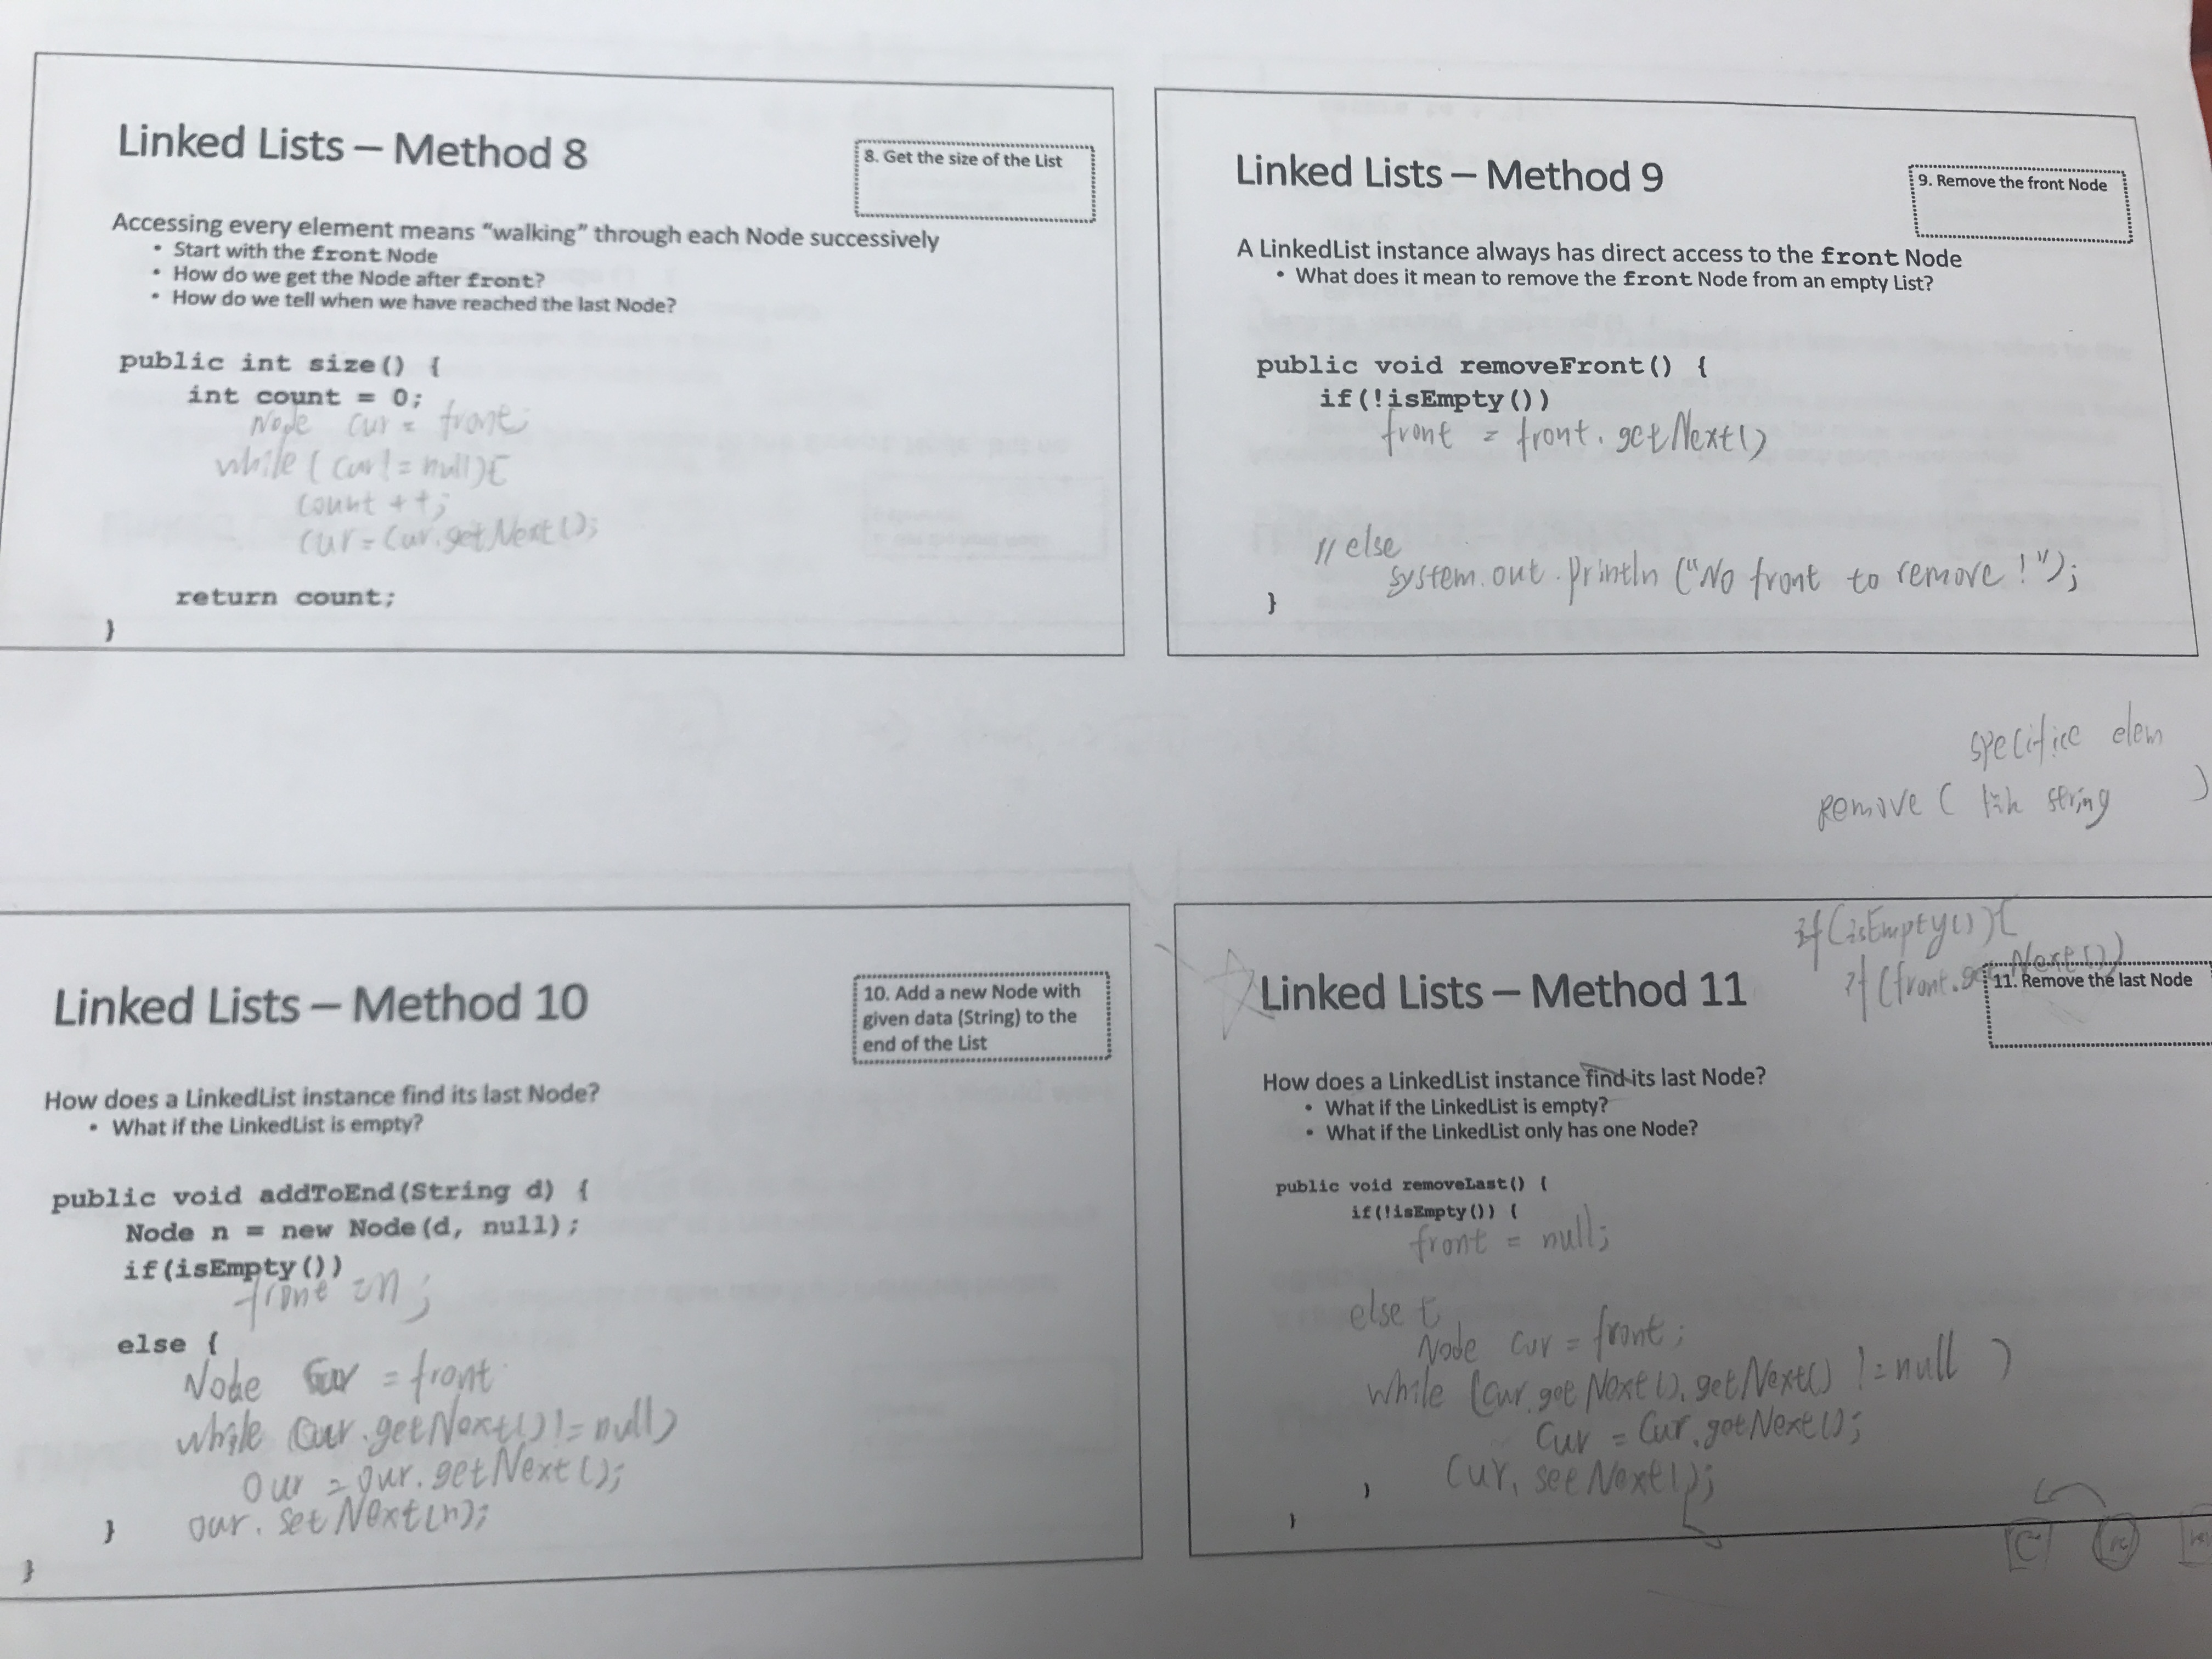 Linked Lists – Method 8
8. Get the size of the List
Accessing every element means "walking" through each Node successively
• Start with the front Node
• How do we get the Node after front?
• How do we tell when we have reached the last Node?
public int size() {
int count = 0;
Node cur = front;
while (cur != null){
count ++;
cur = cur.getNext();
return count;
}
Linked Lists – Method 9
9. Remove the front Node
A LinkedList instance always has direct access to the front Node
• What does it mean to remove the front Node from an empty List?
public void removeFront() {
if(!isEmpty())
front = front.getNext()
// else
system.out.println("No front to remove!");
}
specific elem
remove ( string )
Linked Lists – Method 10
10. Add a new Node with
given data (String) to the
end of the List
How does a LinkedList instance find its last Node?
• What if the LinkedList is empty?
public void addToEnd(String d) {
Node n = new Node(d, null);
if(isEmpty())
front = n;
else {
Node cur = front
while (cur.getNext() != null)
cur = cur.getNext();
cur.setNext(n);
}
}
if(isEmpty()){
if(front.getNext())
Linked Lists – Method 11
11. Remove the last Node
How does a LinkedList instance find its last Node?
• What if the LinkedList is empty?
• What if the LinkedList only has one Node?
public void removeLast() {
if(!isEmpty()) {
front = null;
else {
Node cur = front;
while (cur.getNext().getNext() != null )
cur = cur.getNext();
cur.setNext();
}
}